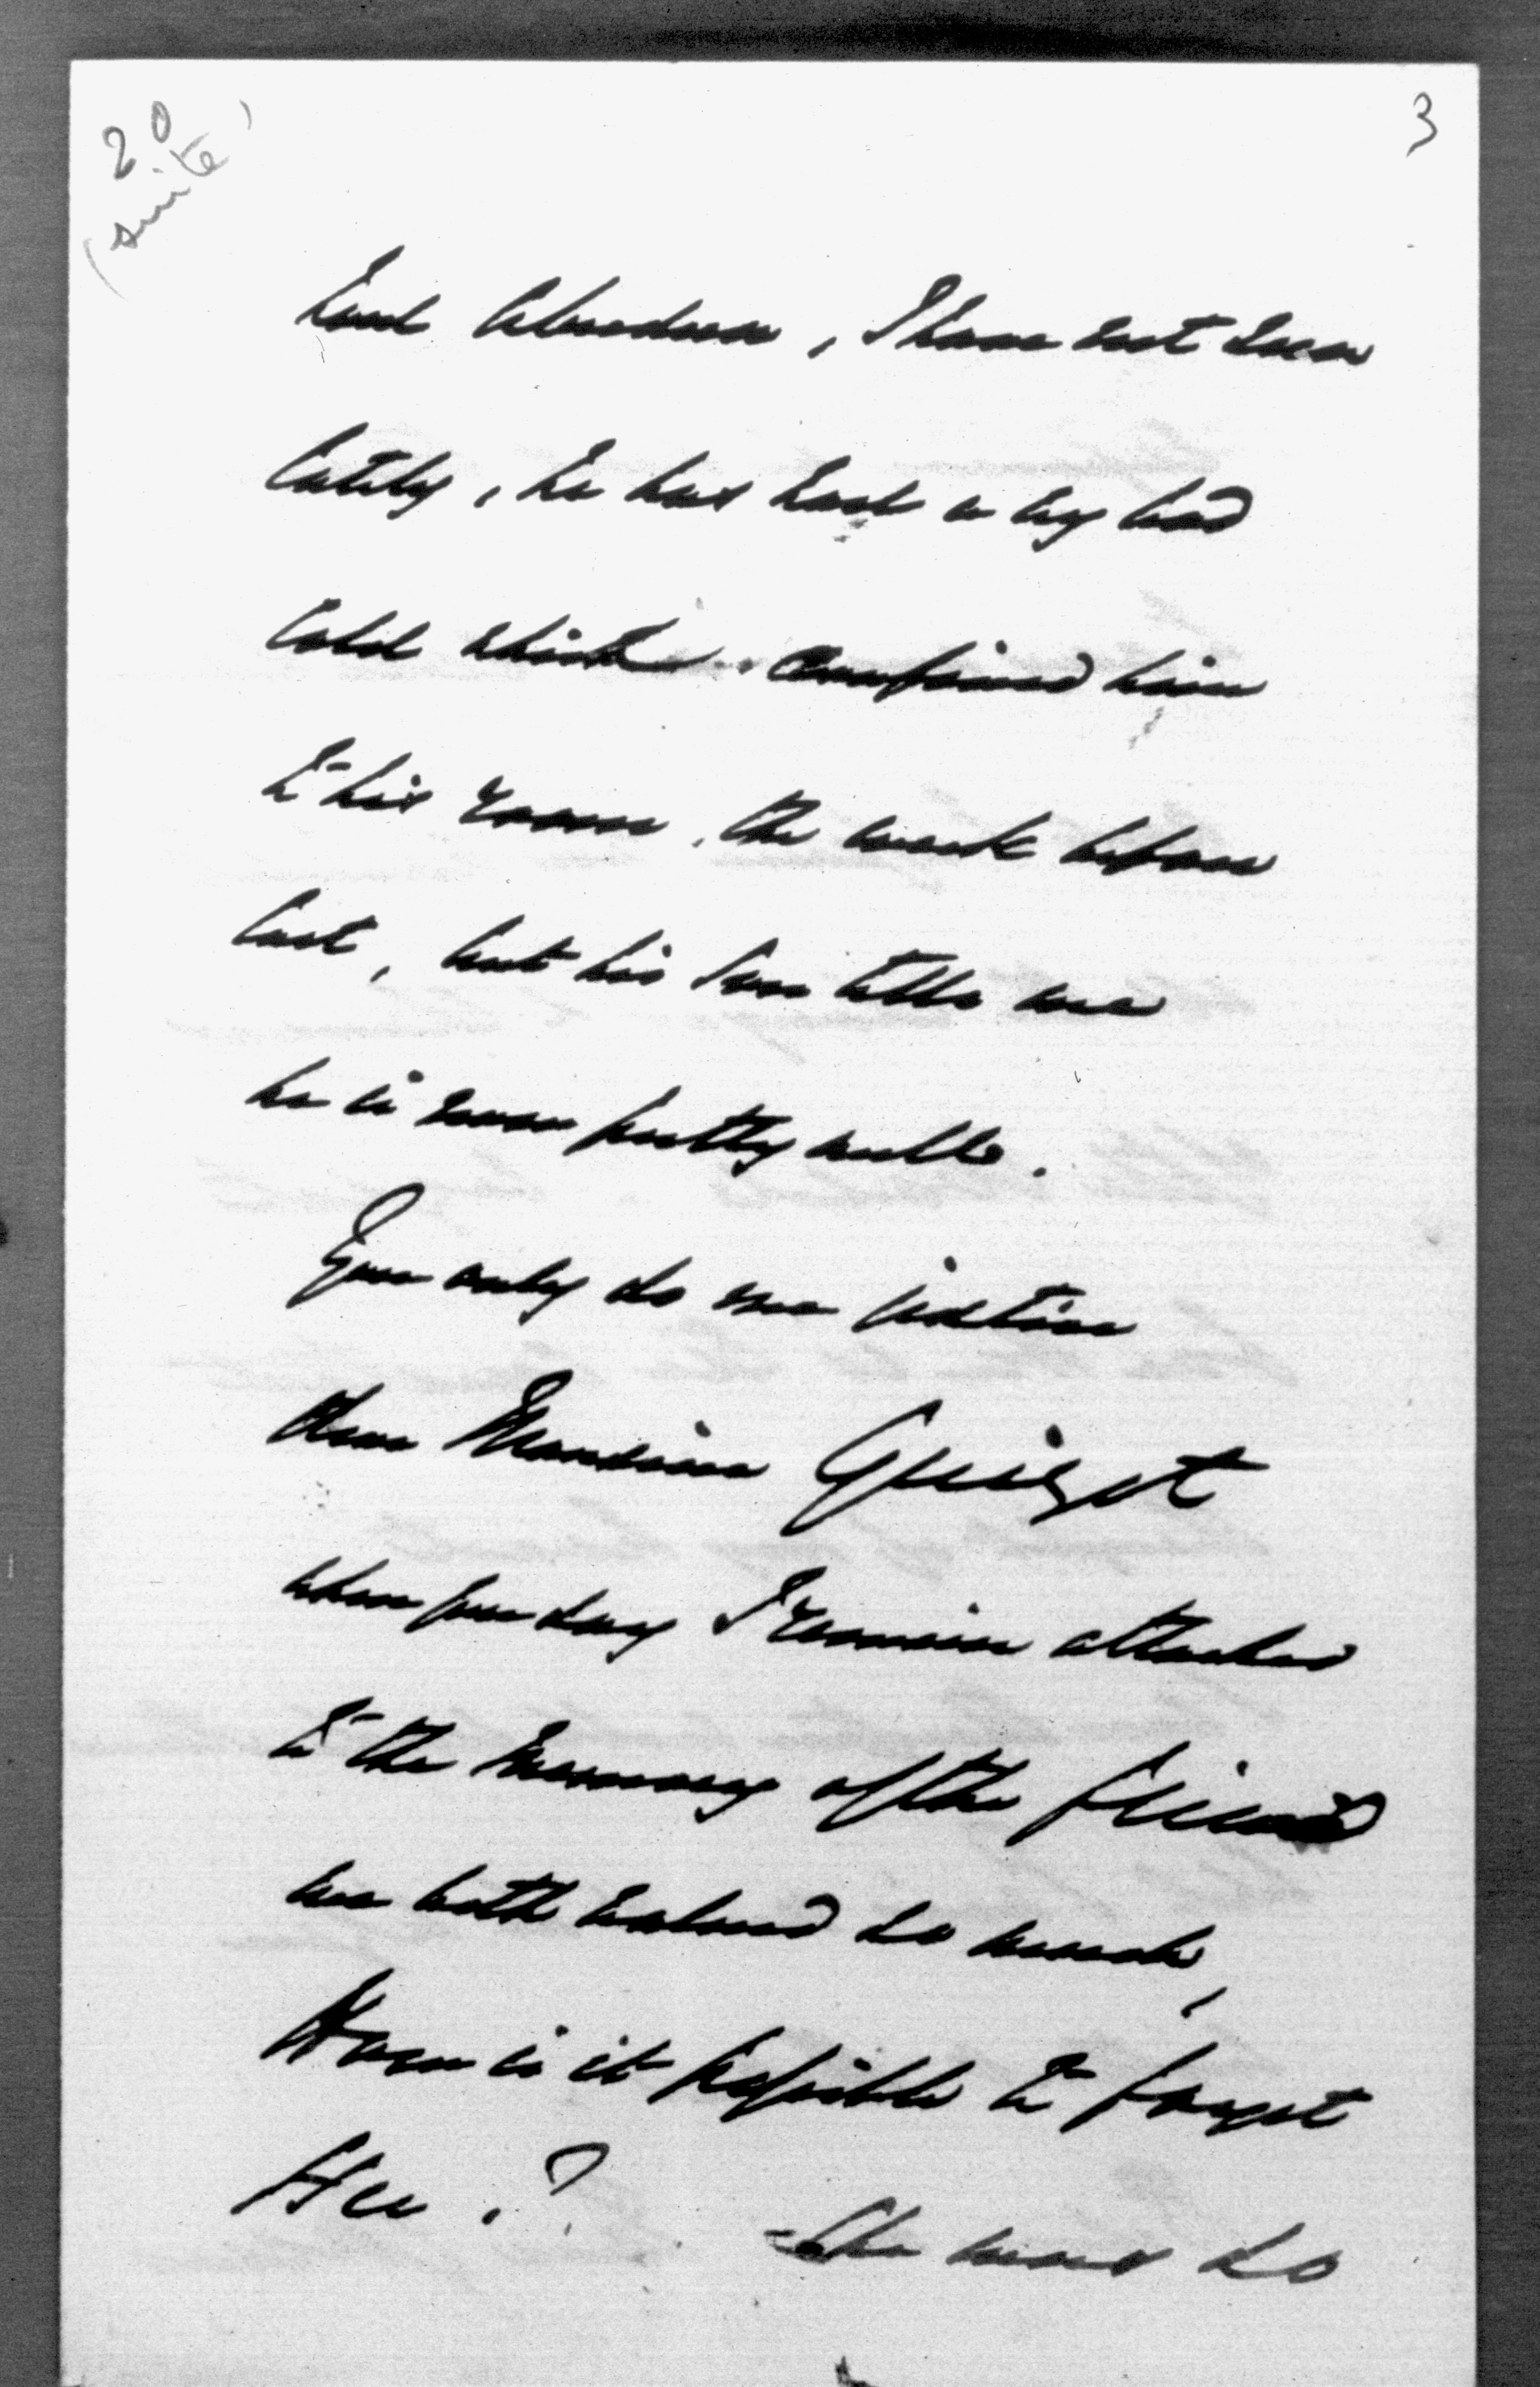 20
(suite)
3
Lord Aberdeen, I have not seen
lately, he has had a very bad
cold which confined him
to his room, the week before
last, but his son tells me
he is now pretty well.
You only do me justice
dear Monsieur Guizot
when you say I remain attached
to the memory of the friend
we both valued so much,
How is it possible to forget
Her? - She was so